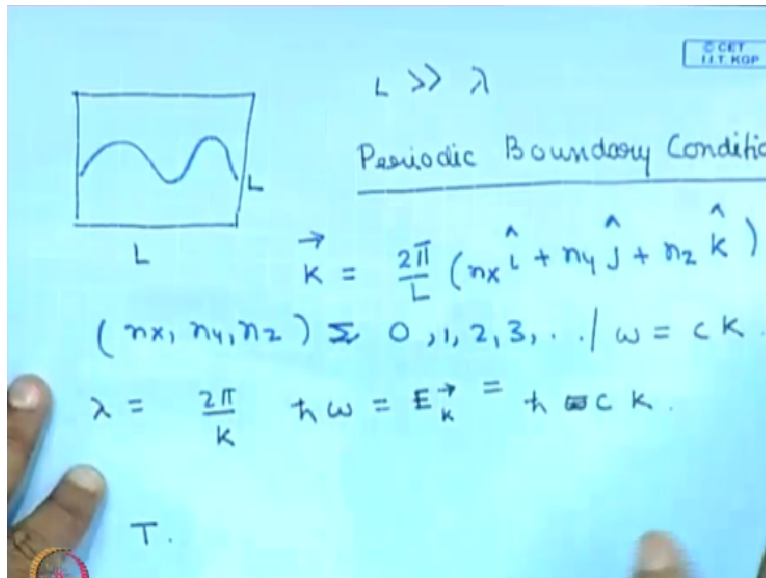 © CET
I.I.T. KGP
L >> λ
Periodic Boundary Conditio
L
L
K⃗ = 2π/L (nx î + ny ĵ + nz k̂)
(nx, ny, nz) Σ 0, 1, 2, 3, . . / ω = c k.
λ = 2π/k ħω = E_k⃗ = ħ c k.
T.